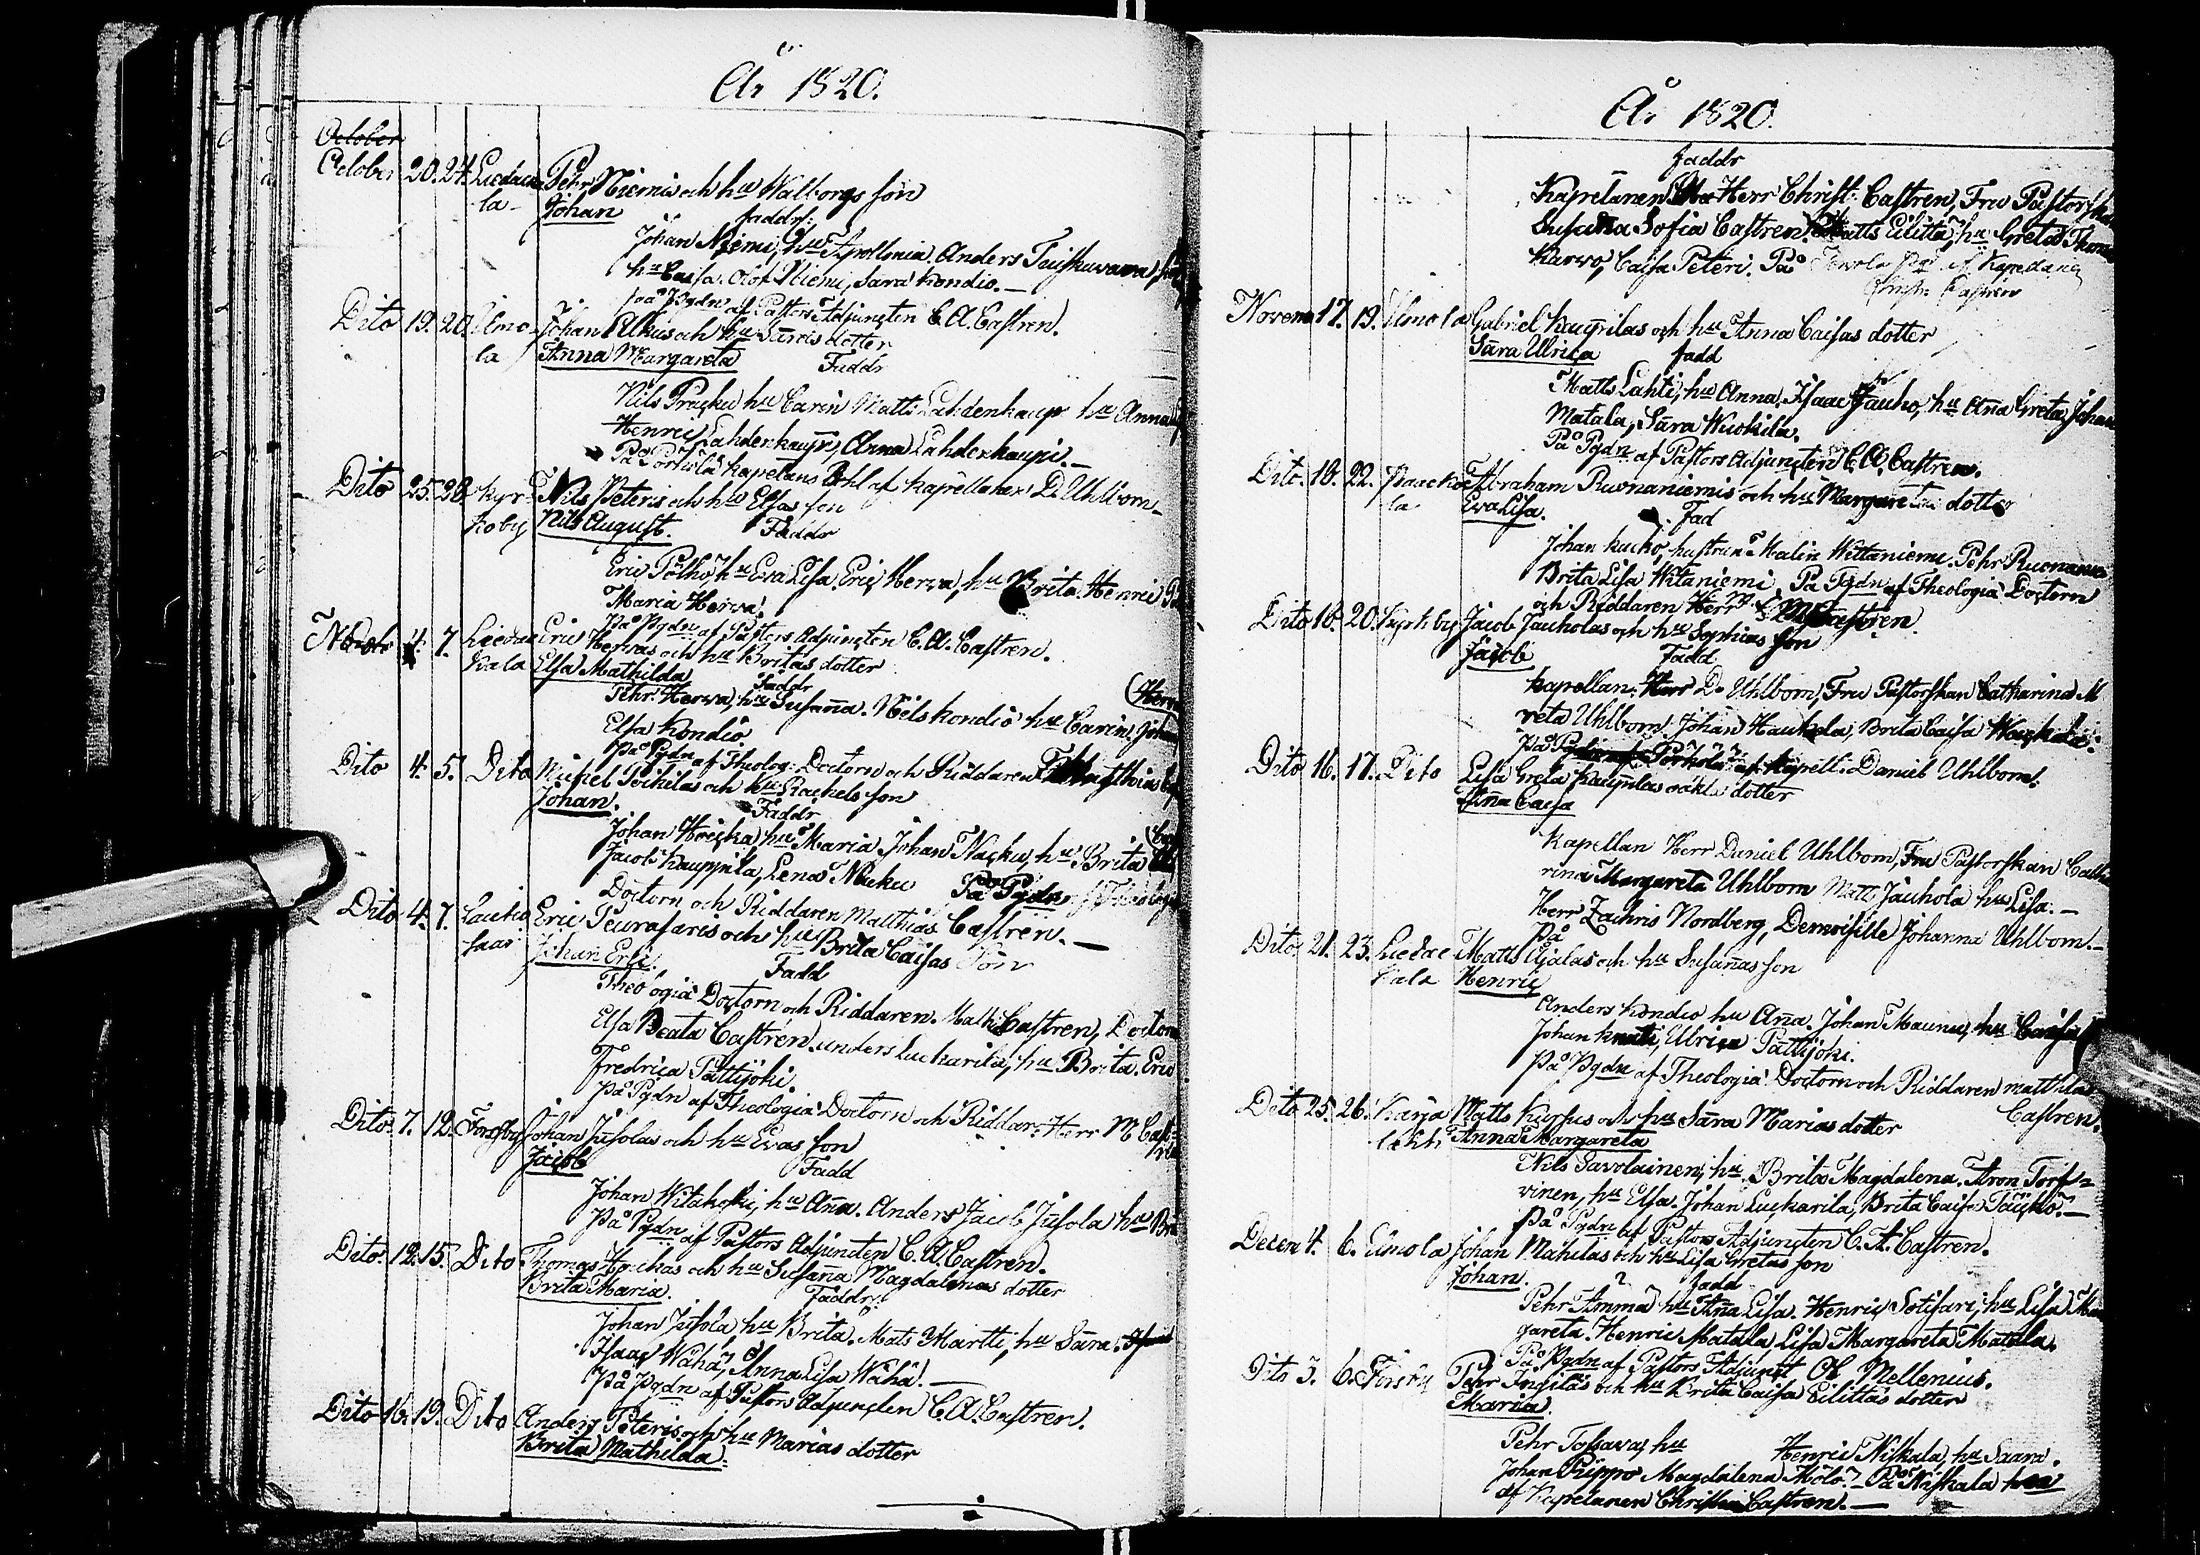 År 1820.
October
October 20. 24. Liedak Pehr Niemis och hu Walborgs son
la Johan faddr:
Johan Niemi, hu Apollonia. Anders Tuiskuvaara,
hu Caisa. Olof Niemi, Sara Kondio.
på Pgdn af Pastors Adjuncten C. A. Castren.
Dito 19. 20. Ulmo Johan Ulkus och hu dotter
la Anna Margareta Faddr
Nils Pruiku hu Carin Matts Lahdenkaupi hu Anna
Henric Lahdenkaupi, Anna Lahdenkaupi.
På kapelans af kapellanen D. Uhlbom
Dito 25. 28. kyr Nils Peteris och hu Elsas son
koby Nils August. Faddr
Eric Pölhö, hu Eva Lisa. Eric Herva, hu Brita. Henric
Maria Herva.
på Pgdn af Pastors Adjuncten C. A. Castren.
4. 7. Liedak Eric Hervas och hu Britas dotter
kala Elsa Mathilda Faddr
Pehr Herva, hu Susanna. Nils Kondio hu Carin. Johan (Herva
Elsa Kondio
på Pgdn af Theolog: Doctorn och Riddaren
Dito 4. 5. Dito Michel Peikilas och hu Rachels son
Johan. Faddr
Johan Hoicka hu Maria Johan Nacku, hu Brita
Jacob Kauppila, Lena Nacku På Pgdn af Theologiæ
Doctorn och Riddaren Matthias Castren.
Dito 4. 7. Lautio Eric Peurasaris och hu Brita Caisas Son
saar Johan Eric. Fadd
Theologiæ Doctorn och Riddaren. Math Castren, Doctorn
Elsa Beata Castren. Anders Luckarila, hu Brita. Eric
Fredrica Pattijoki.
på Pgdn af Theologiæ Doctorn och Riddar. Herr M Cast
Dito 7. 12. Forsby Johan Jusolas och hu Evas son
Jacob Fadd
Johan Witakoski, hu Anna. Anders Jacob Jusola hu
på Pgdn af Pastors Adjuncten C. A. Castren.
Dito 12. 15. Dito Thomas Hoickas och hu Susanna Magdalenas dotter
Brita Maria. Faddr:
Johan Jusola hu Brita. Mats Martti, hu Sara.
Isaac Wähä, Anna Lisa Wähä.
På Pgdn af Pastors Adjuncten C. A. Castren.
Dito 16. 19. Dito Anders Peteris och hu Marias dotter
Brita Mathilda.
År 1820.
faddr
Kapelanen Herr Christ: Castren, Fru Pastorskan
Susanna Sofia Castren. Matts Eilitta, hu Greta. Thomas
Karvo, Caisa Peteri. På af Kapelanen
Christ: Castren
Novem 17. 19. Ulmola Gabriel Kaupilas och hu Anna Caisas dotter
Sara Ulrica fadd
Matts Lahti, hu Anna. Isaac Jauho, hu Anna Greta, Johan
Matala, Sara Wuokila.
På Pgdn af Pastors Adjuncten C. A. Castren.
Dito. 18. 22. Paacko Abraham Ruonaniemis och hu Margaretas dotter
la Eva Lisa. Fad
Johan Kacko, hustrun Malin Wittaniemi. Pehr Ruonaniemi
Brita Lisa Witaniemi På Pgdn af Theologiæ Doctorn
och Riddaren Herr M Castren.
Dito 18. 20. Kyrkby Jacob Jauholas och hu Sophias son
Jacob Fadd
kapellan. Herr D. Uhlbom, Fru Pastorskan Catharina M
reta Uhlbom. Johan Haukela, Brita Caisa
På af Kapell. Daniel Uhlbom.
Dito 16. 17. Dito Lisa Greta Kaupilas oäkta dotter
Anna Caisa
Kapellan Herr Daniel Uhlbom, Fru Pastorskan Catha
rina Margareta Uhlbom Matts Jauhola hu Lisa.
Herr Zachris Nordberg, Demoiselle Johanna Uhlbom.
På
Dito. 21. 23. Liedak Matts Ojalas och hu Susannas son
kala Henric
Anders Kondio hu Anna. Johan Maunu, hu Caisa
Johan Knuti, Ulrica Pattijoki.
på Pgdn af Theologiæ Doctorn och Riddaren Matthias
Castren.
Dito. 25. 26. Karja Matts Kursus och hu Sara Marias dotter
lahti Anna Margareta
Nils Savolainen, hu Brita Magdalena. Aron Torf-
vinen, hu Elsa. Johan Luckarila, Brita Caisa Täickö.
På Pgdn af Pastors Adjuncten C. A. Castren.
Decem 4. 6. Ulmola Johan Mahilas och hu Lisa Gretas son
Johan. fadd
Pehr Ämmä hu Anna Lisa. Henric Sotisari, hu Lisa Mar
gareta. Henric Matala, Lisa Margareta Matala.
På Pgdn af Pastors Adjunct Ol Mellenius.
Dito 3. 6. Forsby Pehr Ingilas och hu Brita Caisa Eilittas dotter
Maria.
Pehr Tolsava, hu Henric Niskala, hu Saara.
Johan Prippo Magdalena Hölö. På Niskala
af Kapelanen Christian Castren.